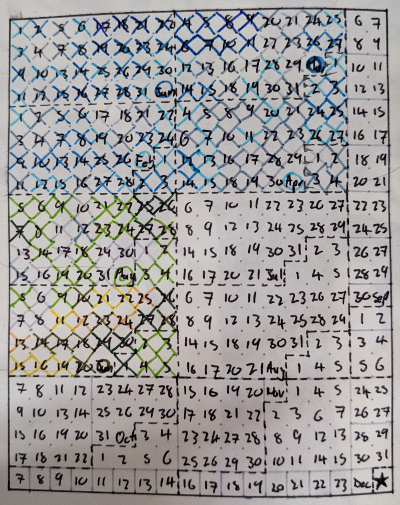 1 2 5 6 17 18 21 22 4 5 8 9 20 21 24 25 6 7
3 4 7 8 19 20 23 24 6 7 10 11 22 23 26 27 8 9
9 10 13 14 25 26 29 30 12 13 16 17 28 29 1 10 11
11 12 15 16 27 28 31 14 15 18 19 30 31 2 3 12 13
1 2 5 6 17 18 21 22 4 5 8 9 20 21 24 25 14 15
3 4 7 8 19 20 23 24 6 7 10 11 22 23 26 27 16 17
9 10 13 14 25 26 Feb 1 12 13 16 17 28 29 1 2 18 19
11 12 15 16 27 28 2 3 14 15 18 19 30 Apr 3 4 20 21
5 6 9 10 21 22 25 26 6 7 10 11 22 23 26 27 22 23
7 8 11 12 23 24 27 28 8 9 12 13 24 25 28 29 24 25
13 14 17 18 29 30 1 2 14 15 18 19 30 31 2 3 26 27
15 16 19 20 31 3 4 16 17 20 21 Jul 1 4 5 28 29
5 6 9 10 21 22 25 26 6 7 10 11 22 23 26 27 30 Sep
7 8 11 12 23 24 27 28 8 9 12 13 24 25 28 29 1 2
13 14 17 18 29 30 1 2 14 15 18 19 30 31 2 3 3 4
15 16 19 20 3 4 16 17 20 21 Aug 1 4 5 5 6
7 8 11 12 23 24 27 28 15 16 19 20 Nov 1 4 5 24 25
9 10 13 14 25 26 29 30 17 18 21 22 2 3 6 7 26 27
15 16 19 20 31 Oct 3 4 23 24 27 28 8 9 12 13 28 29
17 18 21 22 1 2 5 6 25 26 29 30 10 11 14 15 30 31
7 8 9 10 11 12 13 14 16 17 18 19 20 21 22 23 Dec